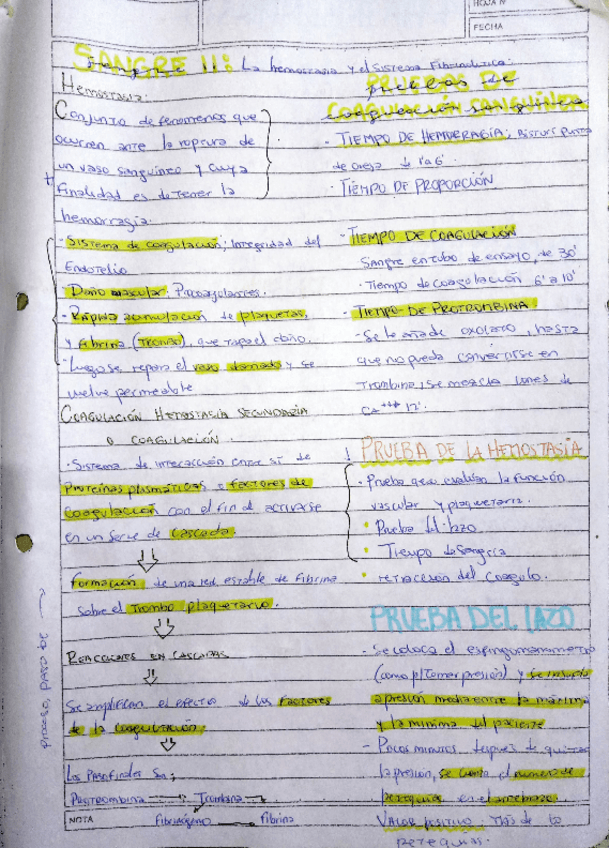 HOJA N°
FECHA
SANGRE II: La hemostasia y el Sistema Fibrinolítico:
Hemostasia:
Conjunto de fenomenos que
ocurren ante la ruptura de
un vaso sanguineo y cuya
finalidad es detener la
hemorragia.
- Sistema de coagulación; Integridad del
Endotelio
- Daño vascular: Procoagulantes.
- Rápida acumulación de plaquetas
y fibrina (TROMBO), que tapa el daño.
- Luego se repara el vaso dañado y se
vuelve permeable
COAGULACIÓN HEMOSTASIA SECUNDARIA
O COAGULACIÓN.
- Sistema de interacción entre sí de
Proteínas plasmáticas o factores de
coagulación con el fin de activarse
en un serie de cascada.
Formación de una red estable de fibrina
sobre el Trombo plaquetario.
REACCIONES EN CASCADAS
Se amplifican el efecto de los factores
de la coagulación.
Los Pasos finales Son:
Protrombina Trombina
NOTA
Fibrinógeno Fibrina
proceso, paso by
PRUEBAS DE
COAGULACIÓN SANGUÍNEA
- TIEMPO DE HEMORRAGIA; Bisturi punta
de oreja 1 a 6'
- TIEMPO DE PROPORCIÓN
- TIEMPO DE COAGULACIÓN
Sangre en tubo de ensayo, de 30'
- Tiempo de coagulación 6' a 10'
- TIEMPO DE PROTROMBINA.
- Se le añade oxalato, hasta
que no pueda convertirse en
Trombina, se mezcla iones de
Ca+++ 12'.
PRUEBA DE LA HEMOSTASIA
- Prueba que evalúan la función
vascular y plaquetaria.
Prueba del lazo
Tiempo de Sangría
retracción del Coagulo.
PRUEBA DEL LAZO
- Se coloca el esfingomanometro
(como p/ tomar presión) y se insufla
a presión media entre la máxima
y la minima del paciente
- Pocos minutos, después de quitar
la presión, se cuenta el numero de
petequias en el antebrazo.
VALOR POSITIVO: Más de 10
petequias.